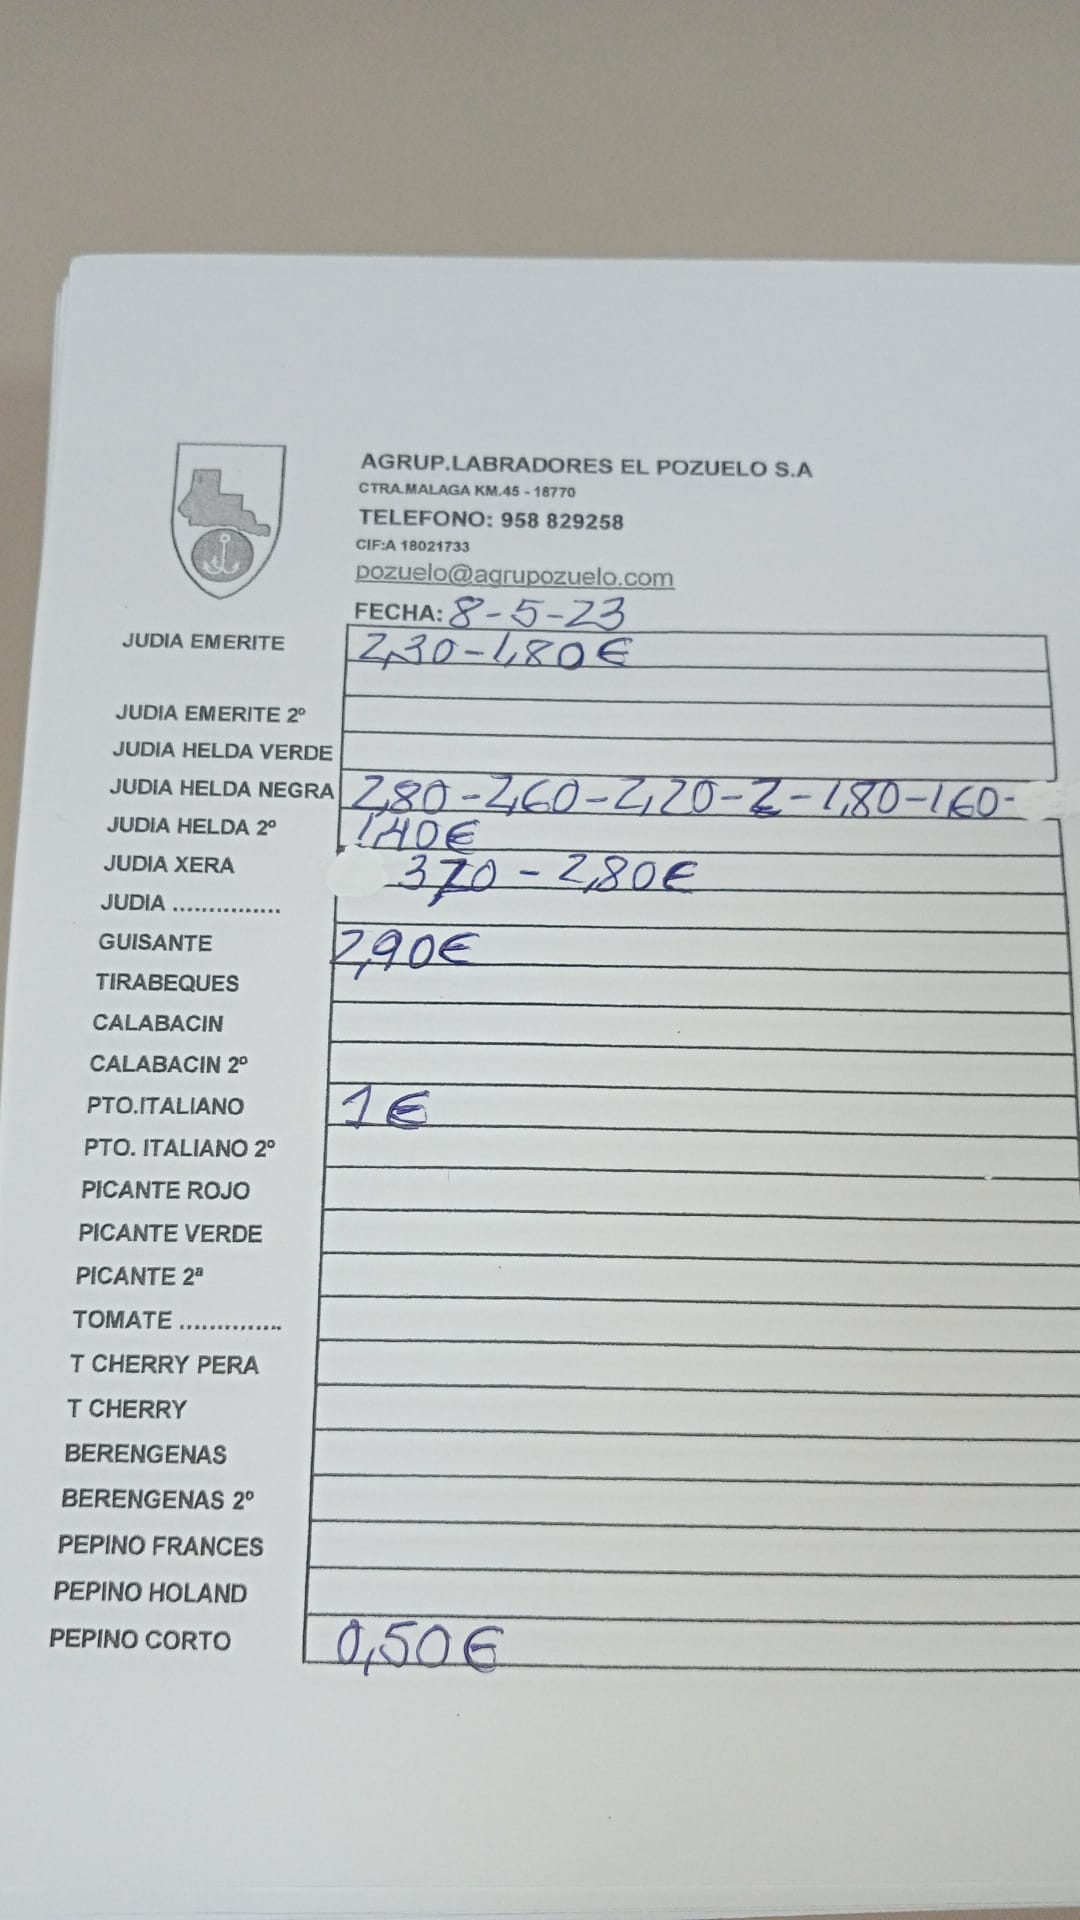 AGRUP.LABRADORES EL POZUELO S.A
CTRA.MALAGA KM.45 - 18770
TELEFONO: 958 829258
CIF:A 18021733
pozuelo@agrupozuelo.com
FECHA: 8-5-23
JUDIA EMERITE 2,30-1,80€
JUDIA EMERITE 2º
JUDIA HELDA VERDE
JUDIA HELDA NEGRA 2,80-2,60-2,20-2-1,80-1,60-
JUDIA HELDA 2º 1,40€
JUDIA XERA 3,70-2,80€
JUDIA ...............
GUISANTE 2,90€
TIRABEQUES
CALABACIN
CALABACIN 2º
PTO.ITALIANO 1€
PTO. ITALIANO 2º
PICANTE ROJO
PICANTE VERDE
PICANTE 2ª
TOMATE ..............
T CHERRY PERA
T CHERRY
BERENGENAS
BERENGENAS 2º
PEPINO FRANCES
PEPINO HOLAND
PEPINO CORTO 0,50€